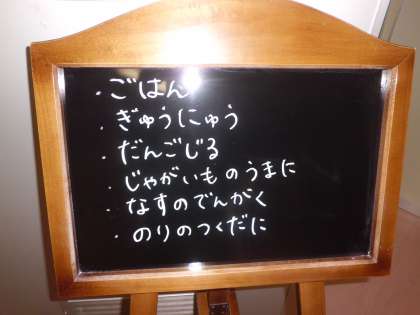 ・ごはん
・ぎゅうにゅう
・だんごじる
・じゃがいものうまに
・なすのでんがく
・のりのつくだに